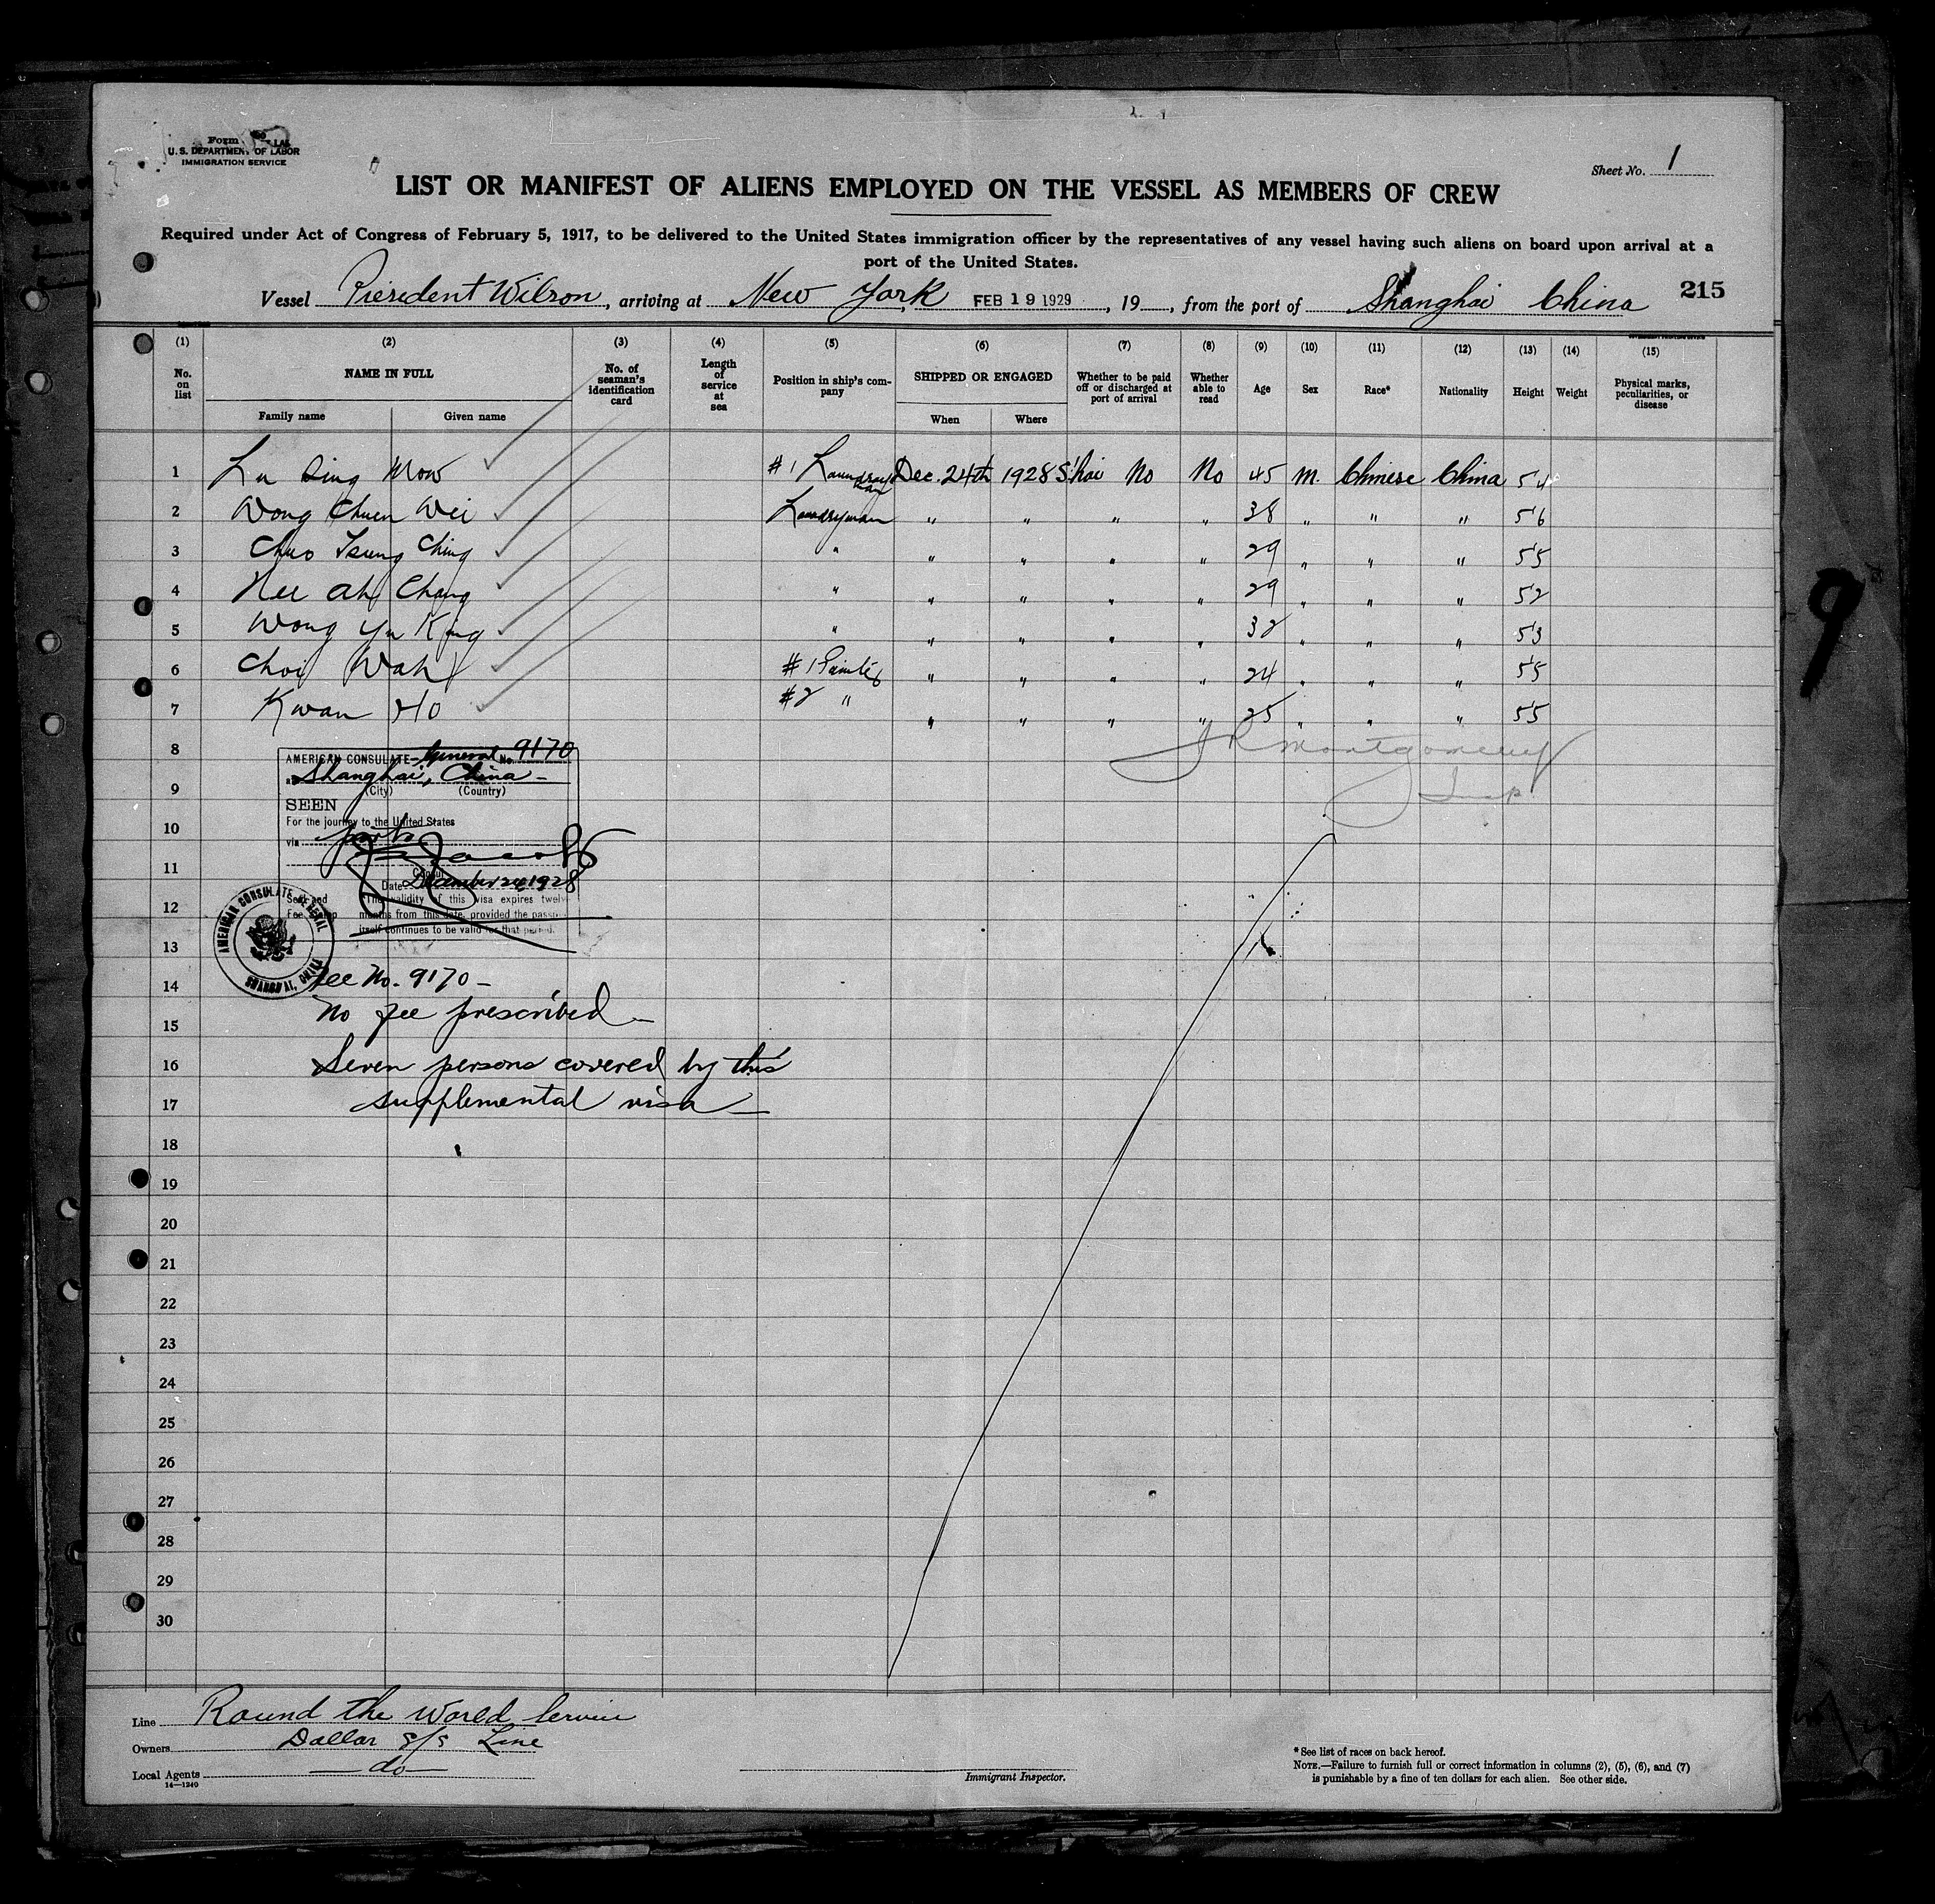 Form
U. S. DEPARTMENT OF LABOR
IMMIGRATION SERVICE
Sheet No. 1
LIST OR MANIFEST OF ALIENS EMPLOYED ON THE VESSEL AS MEMBERS OF CREW
Required under Act of Congress of February 5, 1917, to be delivered to the United States immigration officer by the representatives of any vessel having such aliens on board upon arrival at a
port of the United States.
Vessel President Wilson, arriving at New York, FEB 19 1929, 19, from the port of Shanghai China 215
(1) (2) (3) (4) (5) (6) (7) (8) (9) (10) (11) (12) (13) (14) (15)
No. on list NAME IN FULL Family name Given name No. of seaman's identification card Length of service at sea Position in ship's company SHIPPED OR ENGAGED When Where Whether to be paid off or discharged at port of arrival Whether able to read Age Sex Race* Nationality Height Weight Physical marks, peculiarities, or disease
1 Lu Sing Mow #1 Laundryman Dec. 24th 1928 S'hai No No 45 M. Chinese China 5'4
2 Wong Chuen Wei Laundryman " " " " 38 " " " 5'6
3 Chuo Tsung Ching " " " " " 29 " " " 5'5
4 Nee Ah Chang " " " " " 29 " " " 5'2
5 Wong Yu King " " " " " 32 " " " 5'3
6 Choi Wah #1 Painter " " " " 24 " " " 5'5
7 Kwan Ho #2 " " " " " 25 " " " 5'5
JR Montgomery
Insp.
8
9
10
11
12
13
14
15
16
17
18
19
20
21
22
23
24
25
26
27
28
29
30
AMERICAN CONSULATE General No. 9170
at Shanghai, China
(City) (Country)
SEEN
For the journey to the United States
via ports
Jacobs
Consul
Date December 24, 1928
Seal and Fee Stamp
The validity of this visa expires twelve
months from this date, provided the passport
itself continues to be valid for that period.
AMERICAN CONSULATE GENERAL
SHANGHAI, CHINA
Fee No. 9170 -
No fee prescribed -
Seven persons covered by this
supplemental visa -
Line Round the World Service
Owners Dollar S/S Line
Local Agents do
14—1240
Immigrant Inspector.
* See list of races on back hereof.
NOTE.—Failure to furnish full or correct information in columns (2), (5), (6), and (7)
is punishable by a fine of ten dollars for each alien. See other side.
9